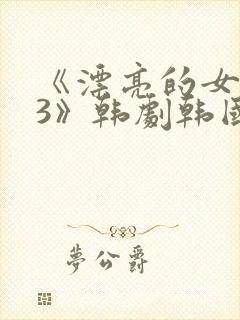 《漂亮的女
3》韩劇韩国
夢公爵